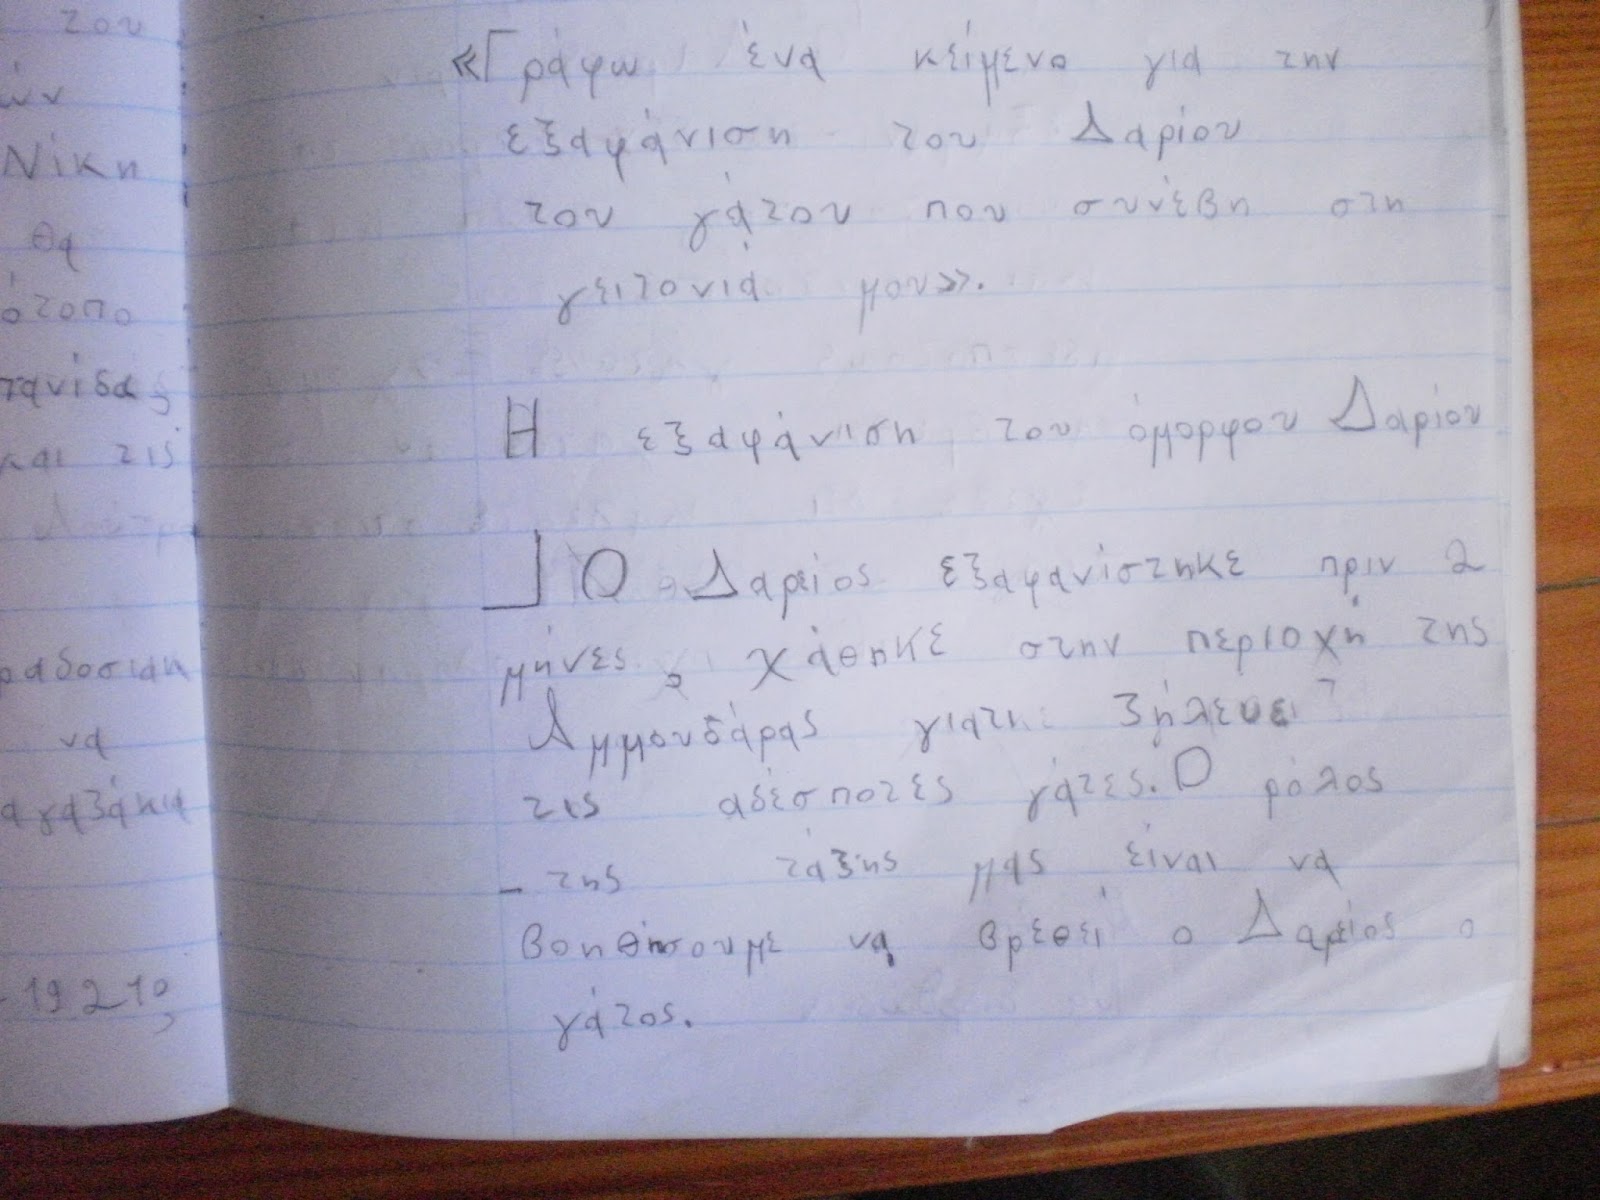 του
ών
Νίκη
θα
ότοπο
τανίδας
και τις
ραδοσιακ
να
αγαζάκια
19 210
«Γράφω ένα κείμενο για την
εξαφάνιση του Δαρίου
του γάτου που συνέβη στη
γειτονιά μου».
Η εξαφάνιση του όμορφου Δαρίου
Ο Δαρείος εξαφανίστηκε πριν 2
μήνες, χάθηκε στην περιοχή της
Αμμουδάρας γιατί ζήλευε
τις αδέσποτες γάτες. Ο ρόλος
της τάξης μας είναι να
βοηθήσουμε να βρεθεί ο Δαρείος ο
γάτος.